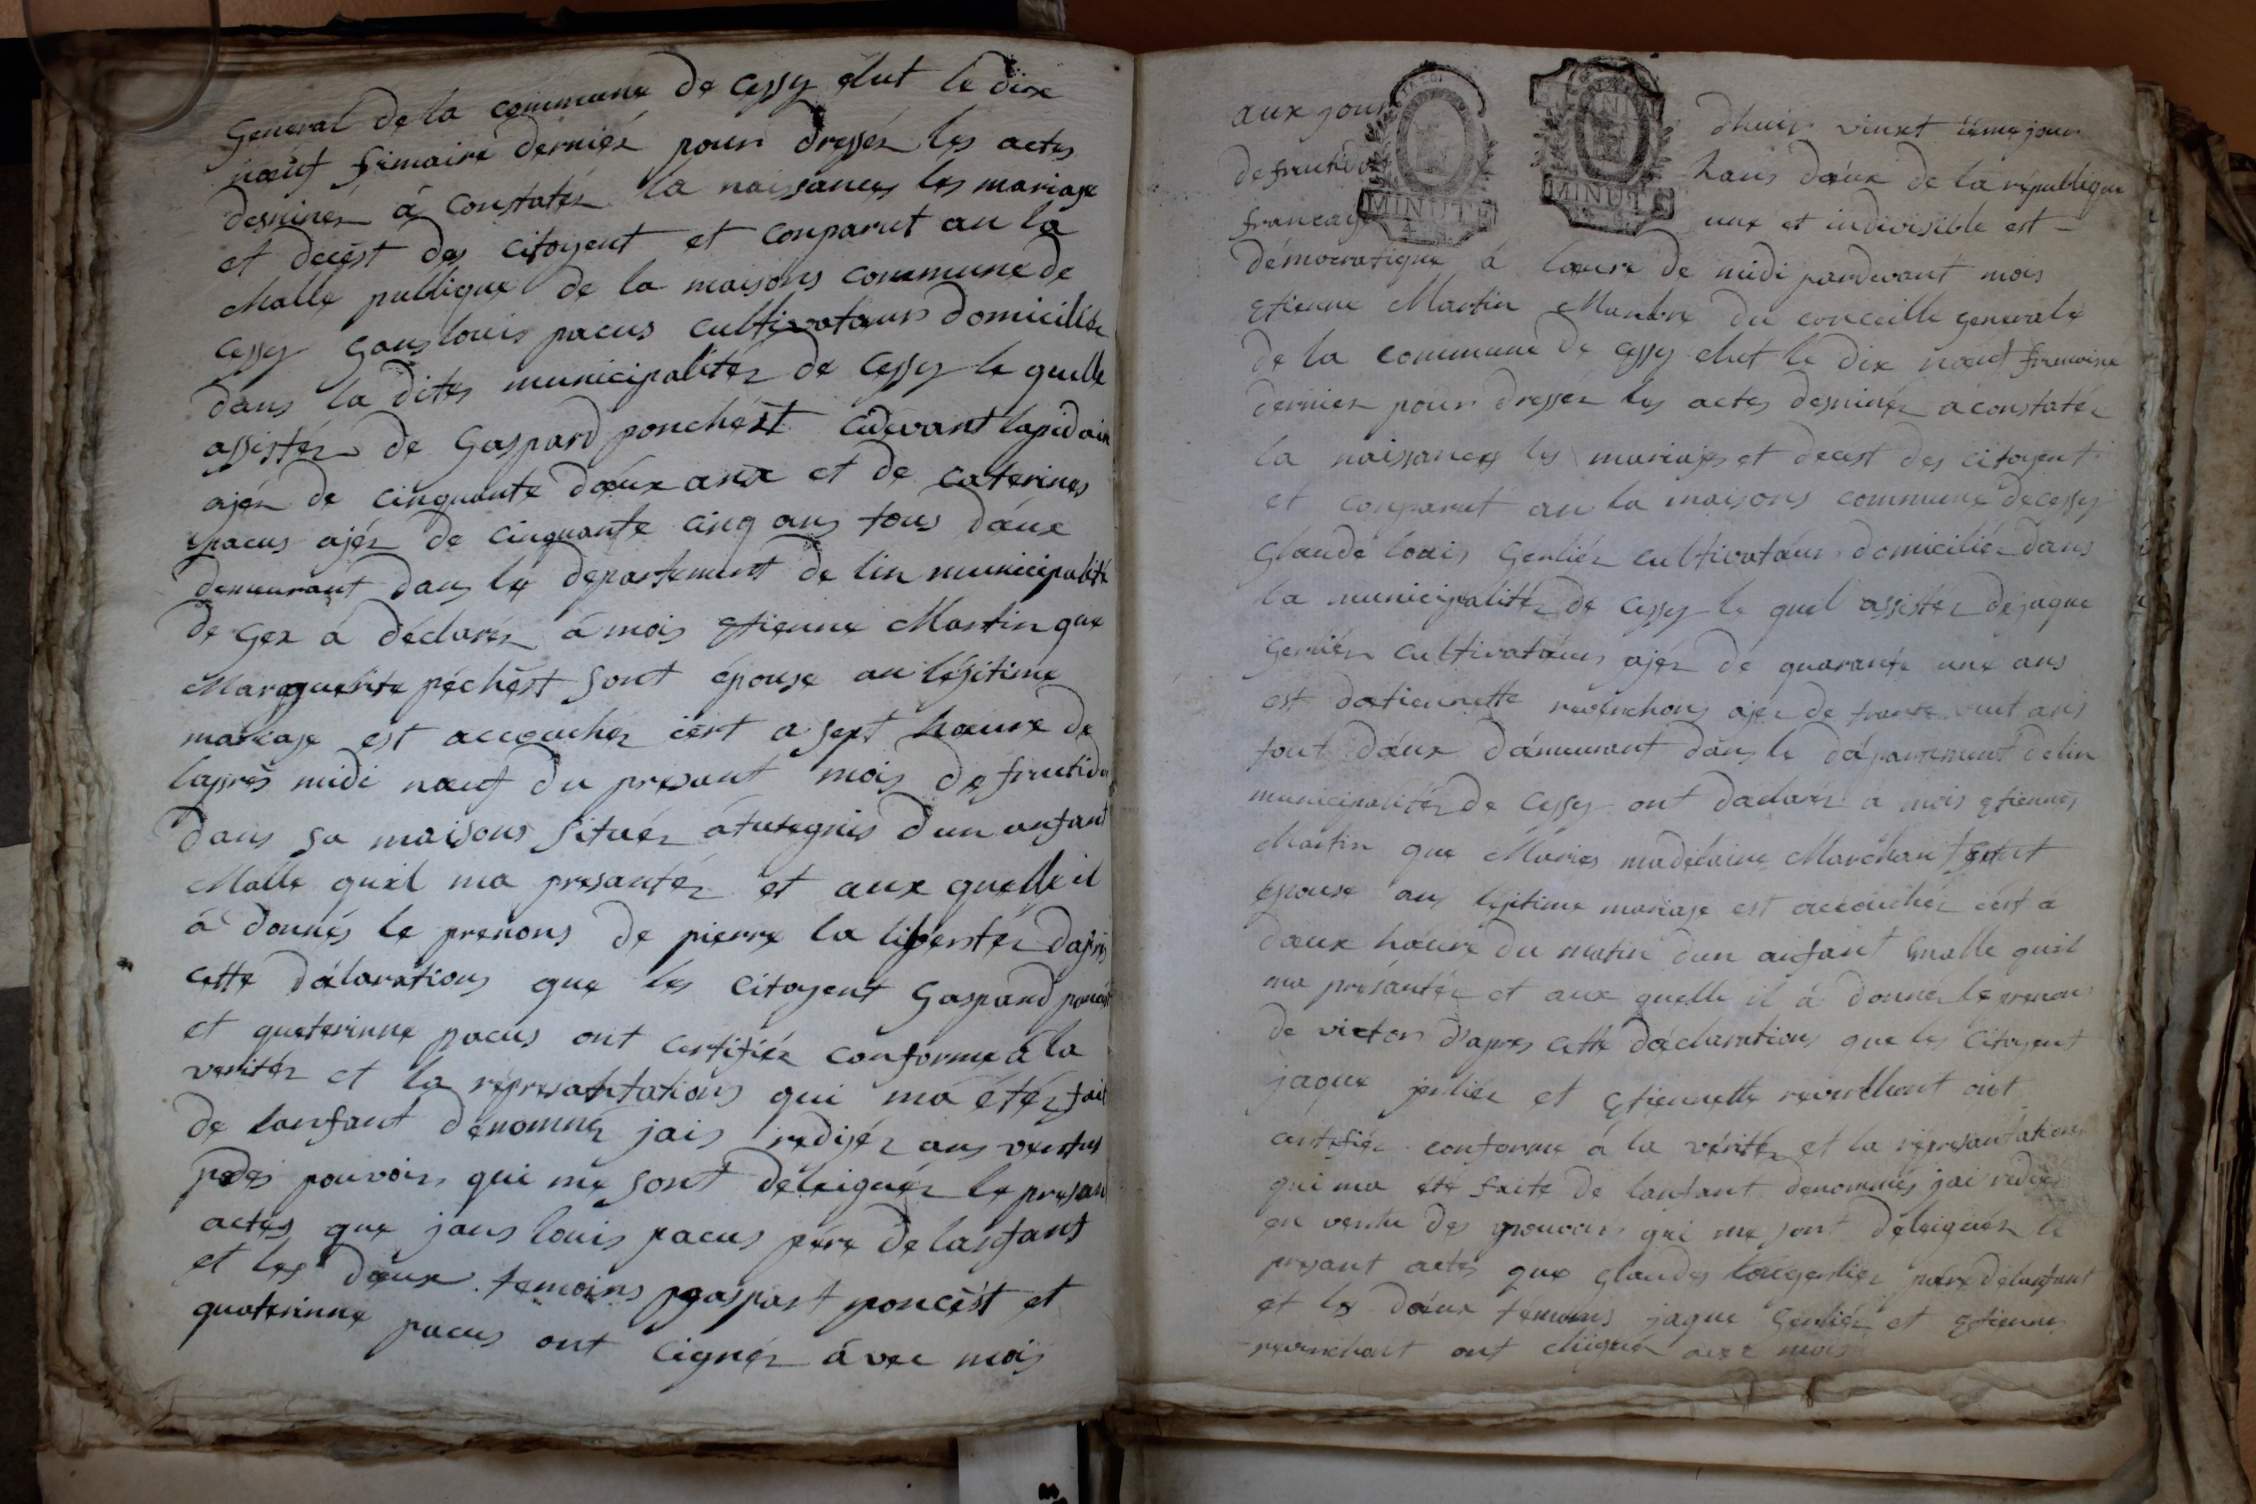 General de la commune de Cessy elut le dixe
nœuf frimaire derniér pour dressér les actes
desninés á constatér la naissances les mariage
et decést des citoyent et conparut an la
Malle publique de la maisons commune de
Cessy Gans louis pacus cultivatœurs domicilié
dans la dites municipalitéz de Cessy le quelle
assistéz de Gaspard ponchést cidevant lapidair
ajéz de cinquante dœux anx et de caterines
pacus ajéz de cinquante cinq ans tous dœux
demeurant dans le departement de lin municipalité
de Gex á déclaréz á mois etienne Martin que
Margueritte péchést sont épouse an légitime
mariage est accouchéz iért a sept hœure de
laprés midi nœuf du presant mois de fructido
dans sa maisons situéz átutegnis dun anfant
Malle quil ma presantéz et aux quelle il
á donnés le prenons de pierre la libertéz dapris
cette déclarations que les citoyent Gaspard poncést
et queterinne pacus ont certifiéz conforme á la
veritéz et la représantations qui ma étéz fait
de lanfant dénomméz jais redigéz ans vertus
des pouvoirs qui me sont déleiguéz le presan
actes que jans louis pacus pére de lanfant
et les dœux temoins gaspart poncést et
quaterinne pacus ont cignéz ávec mois
aux jour dhuis vinxt iéme jour
de fructidor hans dœux de la république
francaise une et indivisible est
MINUTE
MINUTE
démocratique á lœure de midi pardevant mois
etienne Martin Manbre du conceille generale
de la commune de Cessy elut le dix nœuf frimaire
dernier pour dressér les actes desninéz á constatér
la naissances les mariages et decest des citoyent
et conparut an la maisons commune de cessy
Glaude louis Gerliéz cultivatœurs domiciliéz dans
la municipalitéz de Cessy le quel assistéz de jaque
Gerliéz cultivatœurs ajéz de quarante une ans
est dœtiennette revinchons ajéz de trante uit ans
tout dœux démeurant dans le département de lin
municipalitéz de Cessy ont daclaréz a mois etiennes
Martin que Maries madelaine Marchant sont
épouse ans légitime mariage est accouchéz iért a
dœux hœure du matin dun anfant malle quil
ma présantéz et aux quelle il á donnéz le prenons
de victor dapres cette déclarations que les citoyent
jaque jerliéz et etiennette revinchont ont
certifiéz conforme á la véritéz et la réprésantations
qui ma été faite de lanfant denommés jai redigés
en vertu des pouvoirs qui me sont déleiguéz le
presant actes que glaudes Gerliéz pére de lanfant
et les dœux témoins jaque Gerliéz et etiennes
revinchont ont cigné avec mois